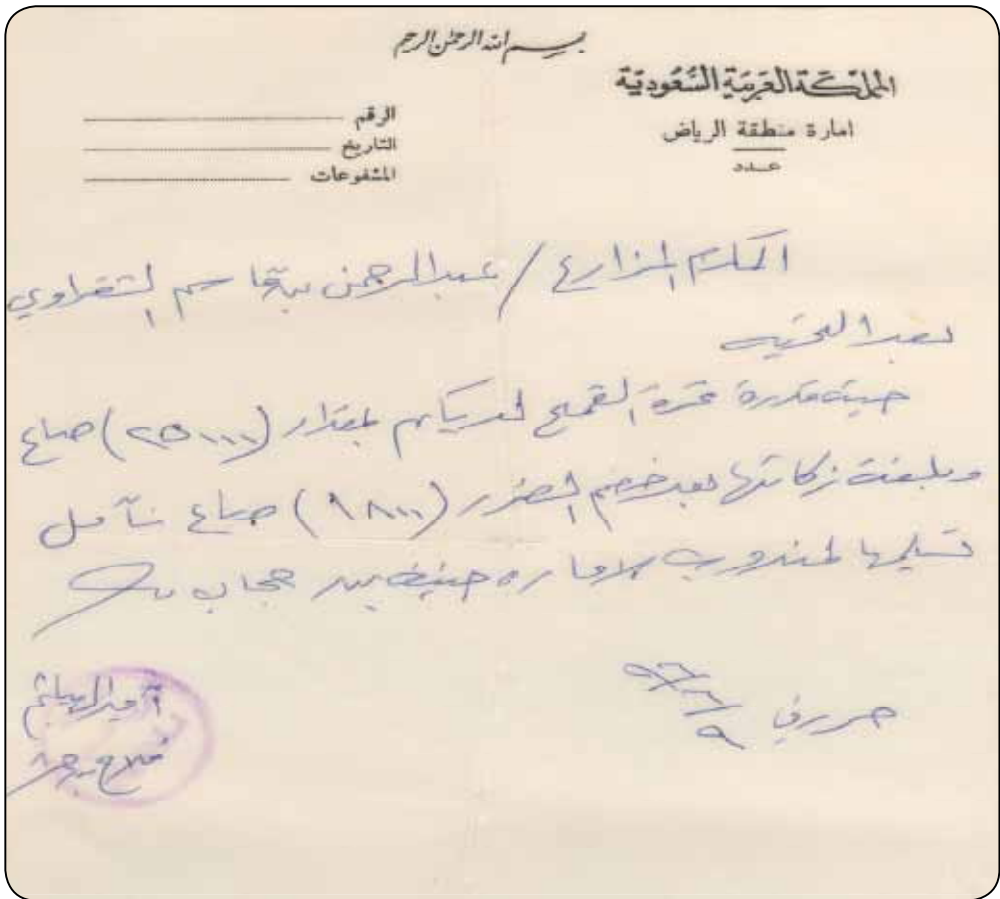 بسم الله الرحمن الرحيم
المملكة العربية السعودية
امارة منطقة الرياض
عدد
الرقم
التاريخ
المشفوعات
المكرم المزارع / عبدالرحمن بن قاسم الشقراوي
بعد التحية
حيث قدرة ثمرة القمح لديكم بمقدار (٢٥٠٠٠) صاع
وبلغت زكاتها بعد خصم الضرر (٩٨٠٠) صاع نأمل
تسليمها لمندوب الاماره حنيف بن حجاب
حرر في ٩/٦/٩٦
فلاح بن